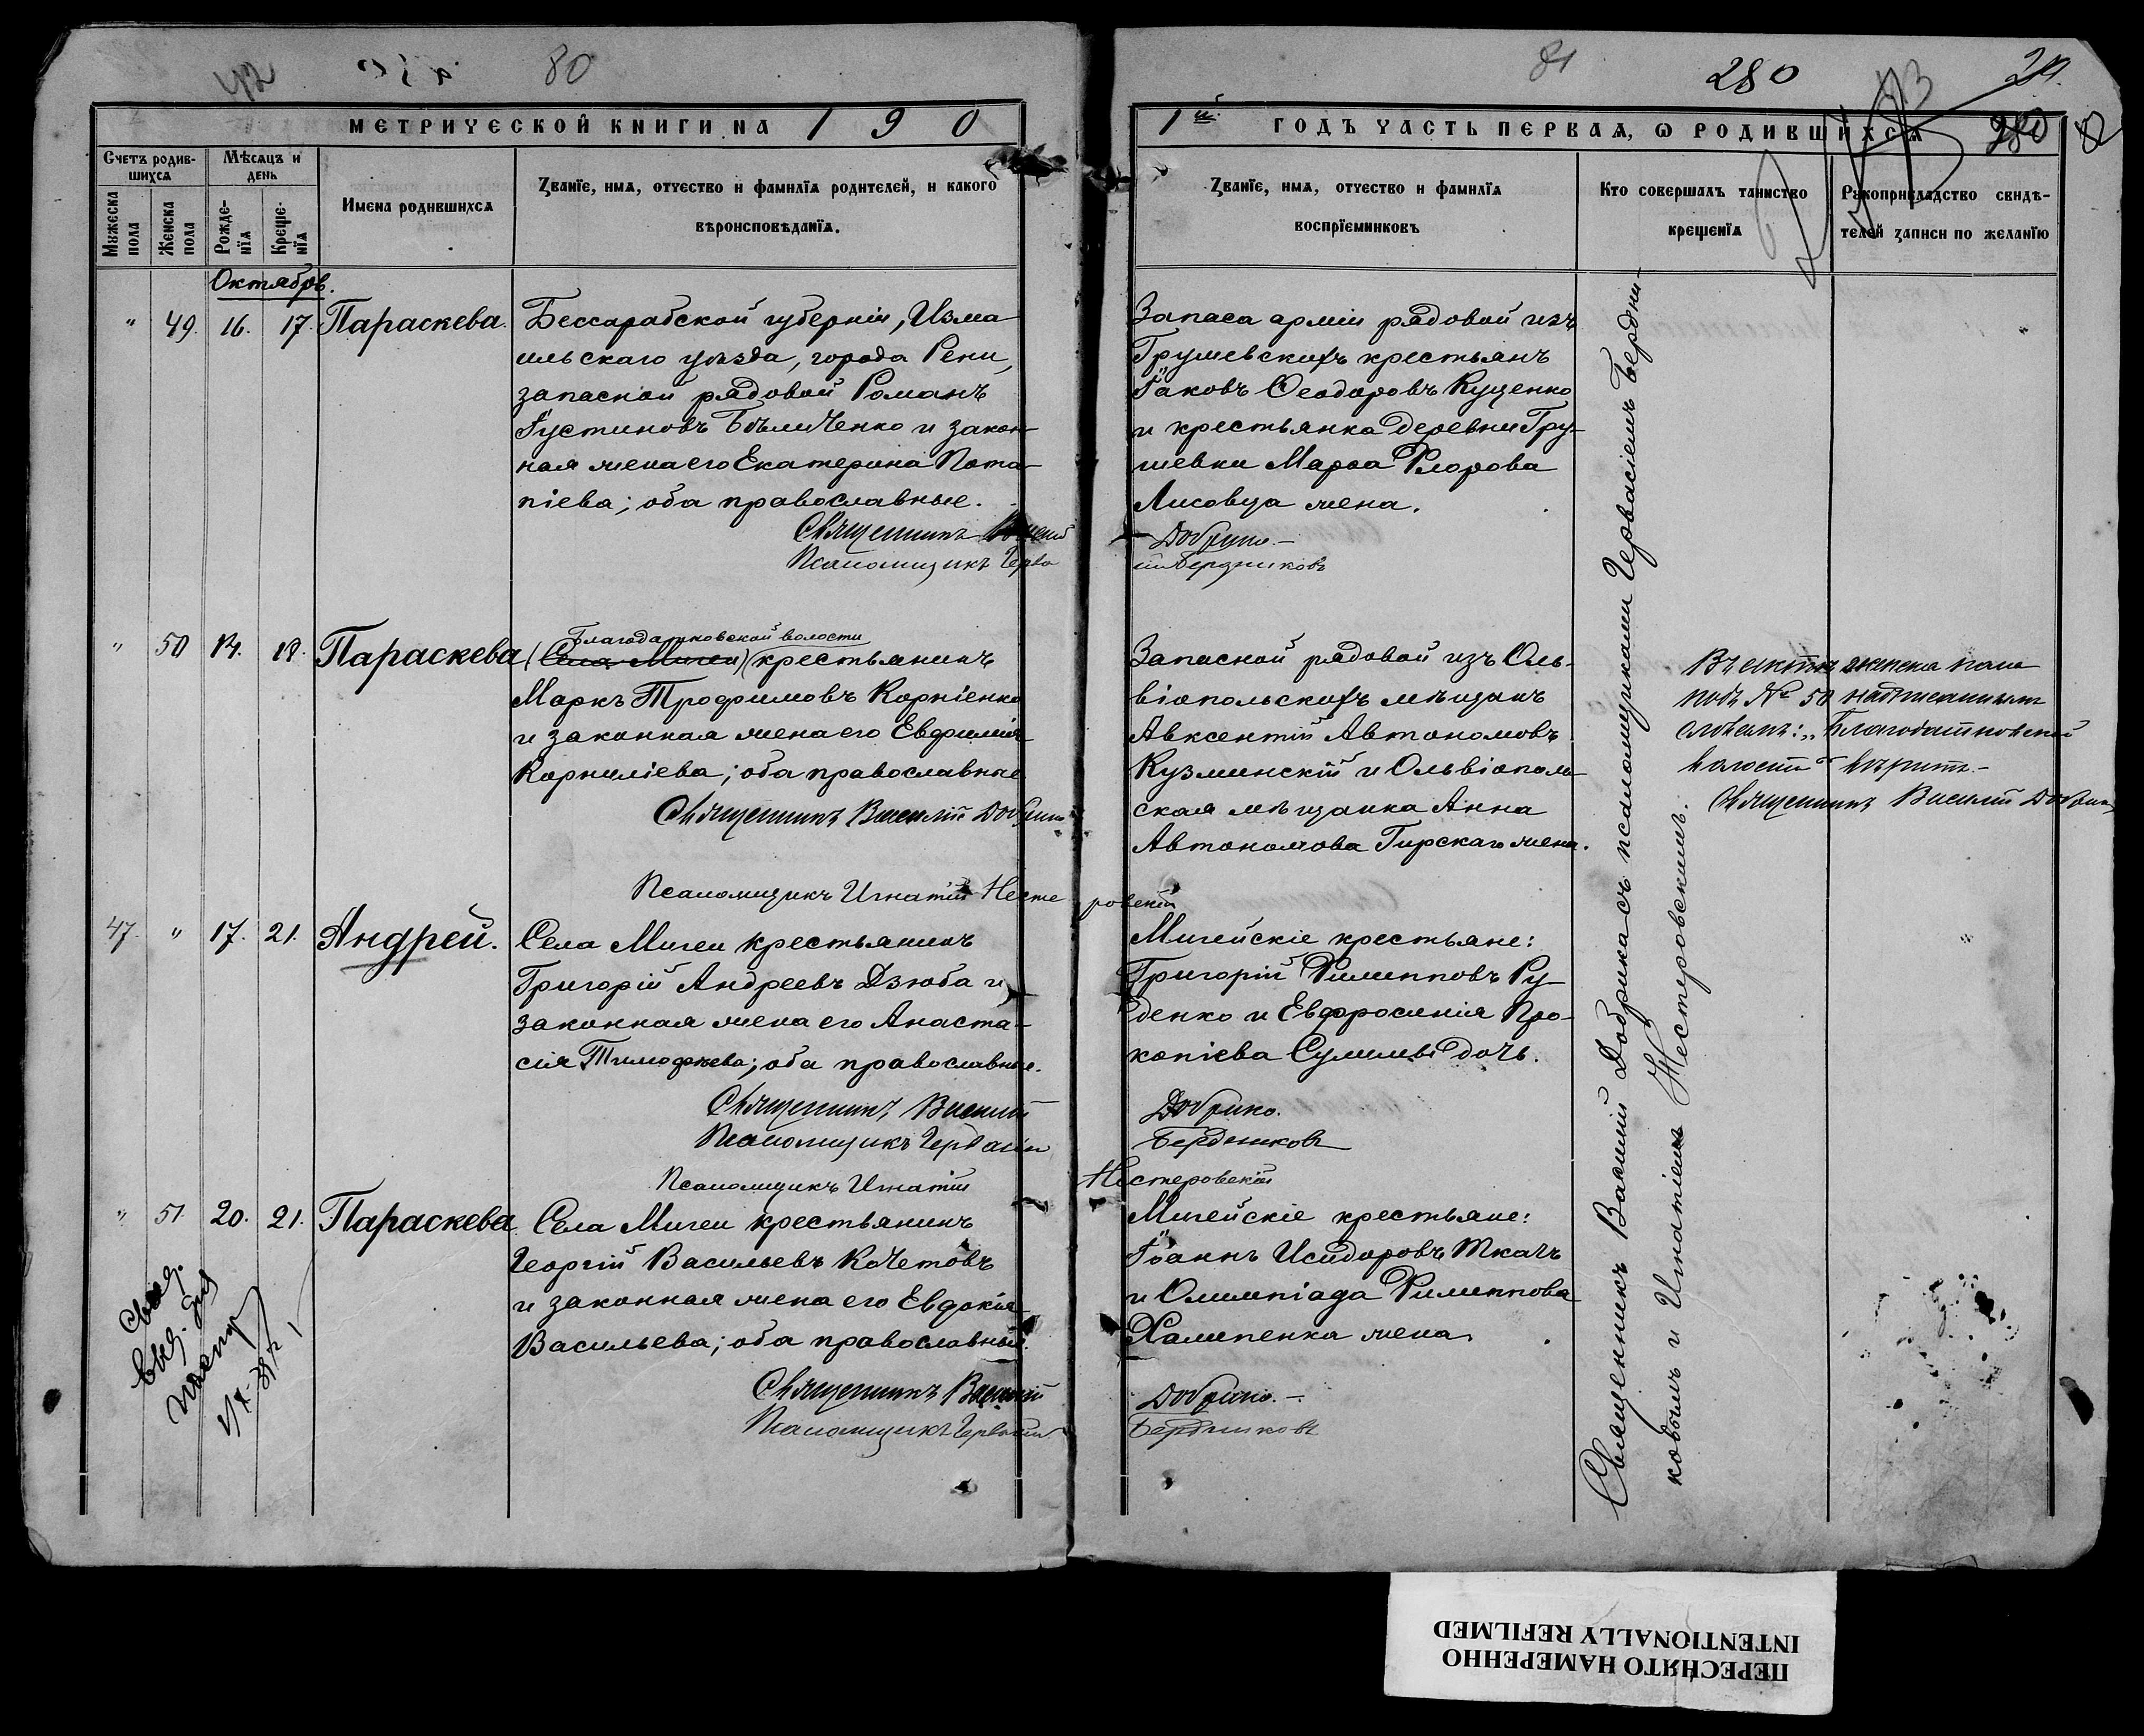 42
80
81
280
МЕТРИЧЕСКОЙ КНИГИ НА 1 9 0
1й ГОДЪ ЧАСТЬ ПЕРВАЯ, Ѡ РОДИВШИХСЯ
280
Счетъ родив-
шихся
Мѣсяцъ и
день
Мужеска
пола
Женска
пола
Рожде-
нїя
Креще-
нїя
Имена родившихся
Званїе, имя, отчество и фамилїя родителей, и какого
вѣроисповѣданїя.
Званїе, имя, отчество и фамилїя
воспрїемниковъ
Кто совершалъ таинство
крещенїя
Рукоприкладство свидѣ-
телей записи по желанїю
Октябрь.
" 49. 16. 17. Параскева.
Бессарабской губерніи, Изма
ильскаго уѣзда, города Рени,
запасной рядовой Романъ
Іустиновъ Бѣличенко и закон-
ная жена его Екатерина Пота-
піева; оба православные.
Священникъ Василій
Псаломщикъ Герва
Запаса арміи рядовой изъ
Грушевскихъ крестьянъ
Іаковъ Ѳеодоровъ Куценко
и крестьянка деревни Гру-
шевки Марѳа Флорова
Лисовца жена.
Добрико.-
сій Бердниковъ
" 50 14. 18. Параскева
Благодатновской волости
(Села Мигеи) крестьянинъ
Маркъ Трофимовъ Корніенко
и законная жена его Евфимія
Корниліева; оба православные
Священникъ Василій Добрико
Псаломщикъ Игнатій Несте
ровскій
Запасной рядовой изъ Оль-
віопольскихъ мѣщанъ
Авксентій Автономовъ
Кузминскій и Ольвіополь-
ская мѣщанка Анна
Автономова Гирскаго жена.
подъ № 50 надписаннымъ
словамъ: „Благодатновской
волости" вѣрить.-
Священникъ Василій Добрико
47. " 17. 21. Андрей.
Села Мигеи крестьянинъ
Григорій Андреевъ Дзюба и
законная жена его Анаста-
сія Тимофѣева; оба православные.
Священникъ Василій
Псаломщикъ Гервасій
Псаломщикъ Игнатій
Мигейскіе крестьяне:
Григорій Филипповъ Ру-
денко и Евфросинія Про-
копіева Сулимы дочь.
Добрико.
Бердниковъ
Нестеровскій
" 51. 20. 21. Параскева
Села Мигеи крестьянинъ
Георгій Васильевъ Кочетовъ
и законная жена его Евдокія
Васильева; оба православные.
Священникъ Василій
Псаломщикъ Гервасій
Мигейскіе крестьяне:
Іоаннъ Исидоровъ Ткачъ
и Олимпіада Филиппова
Халипенка жена.
Добрико.-
Бердниковъ
Священникъ Василій Добрико съ псаломщиками Гервасіемъ Бердни-
ковымъ и Игнатіемъ Нестеровскимъ.
ПЕРЕСНЯТО НАМЕРЕННО
INTENTIONALLY REFILMED